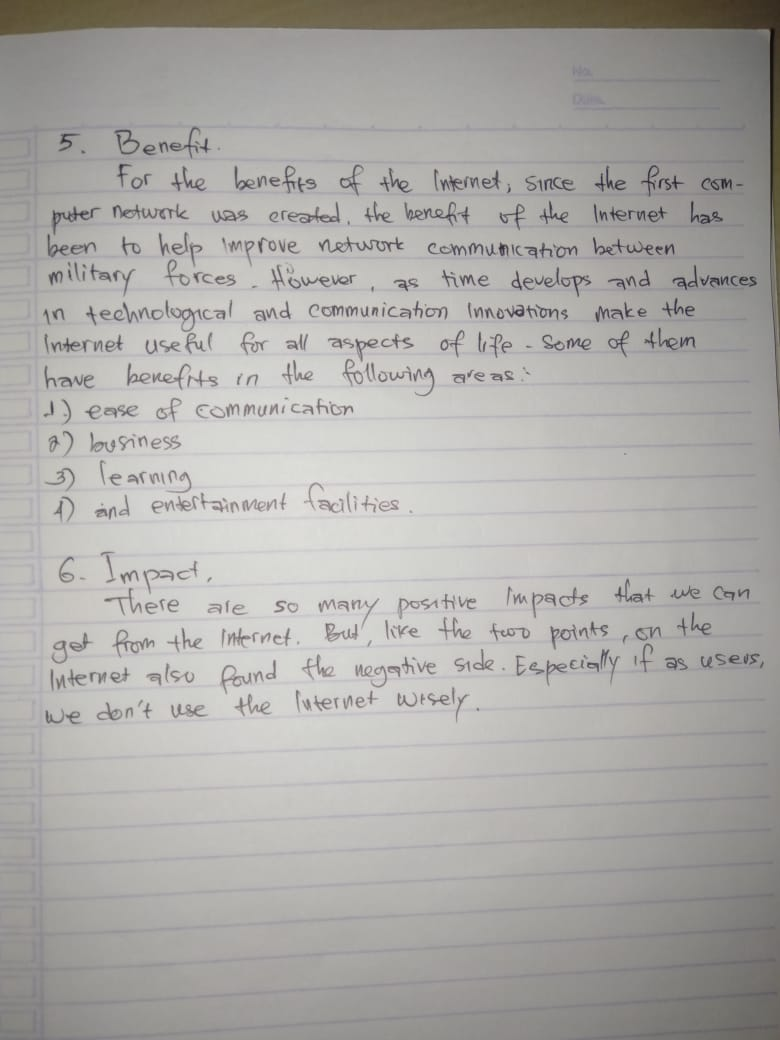 No.
Date.
5. Benefit.
For the benefits of the Internet, since the first com-
puter network was created, the benefit of the Internet has
been to help improve network communication between
military forces. However, as time develops and advances
in technological and communication Innovations make the
Internet useful for all aspects of life. Some of them
have benefits in the following areas:
1) ease of communication
2) business
3) learning
4) and entertainment facilities.
6. Impact.
There are so many positive impacts that we can
get from the Internet. But, like the two points, on the
Internet also found the negative side. Especially if as users,
we don't use the Internet wisely.